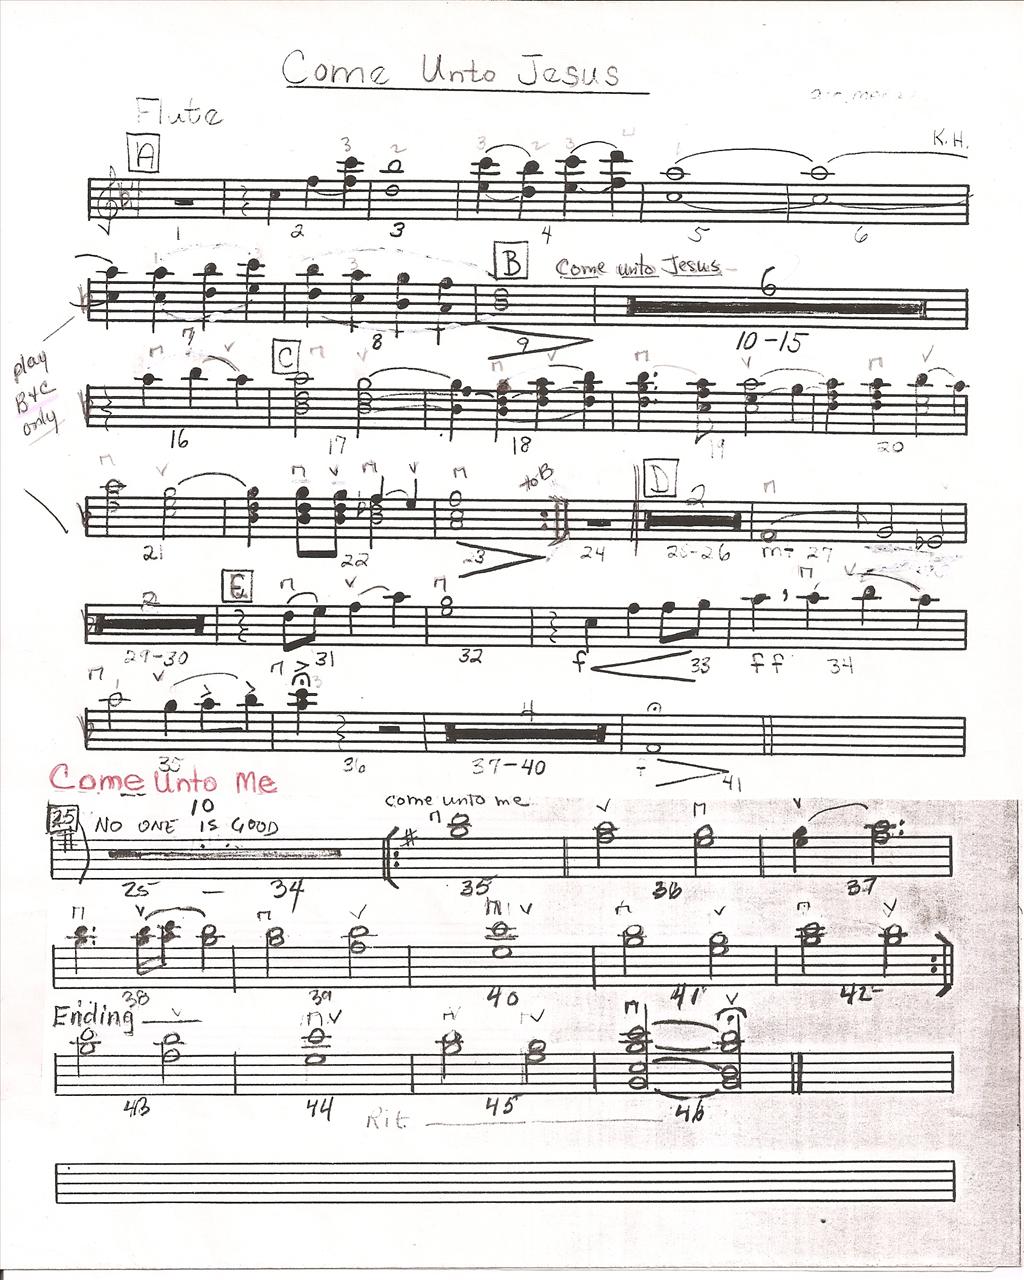 Come Unto Jesus
Flute
K.H.
A
3 2 3 2 3 1
1 2 3 4 5 6
B Come unto Jesus
6
7 8 9 10-15
play B+C only
C
16 17 18 19 20
to B
D 2
21 22 23 24 25-26 27
2 E
29-30 31 32 f 33 ff 34
4
35 36 37-40 41
Come Unto Me
25 NO ONE IS GOOD 10 come unto me
25 — 34 35 36 37
38 39 40 41 42
Ending
43 44 45 46
Rit